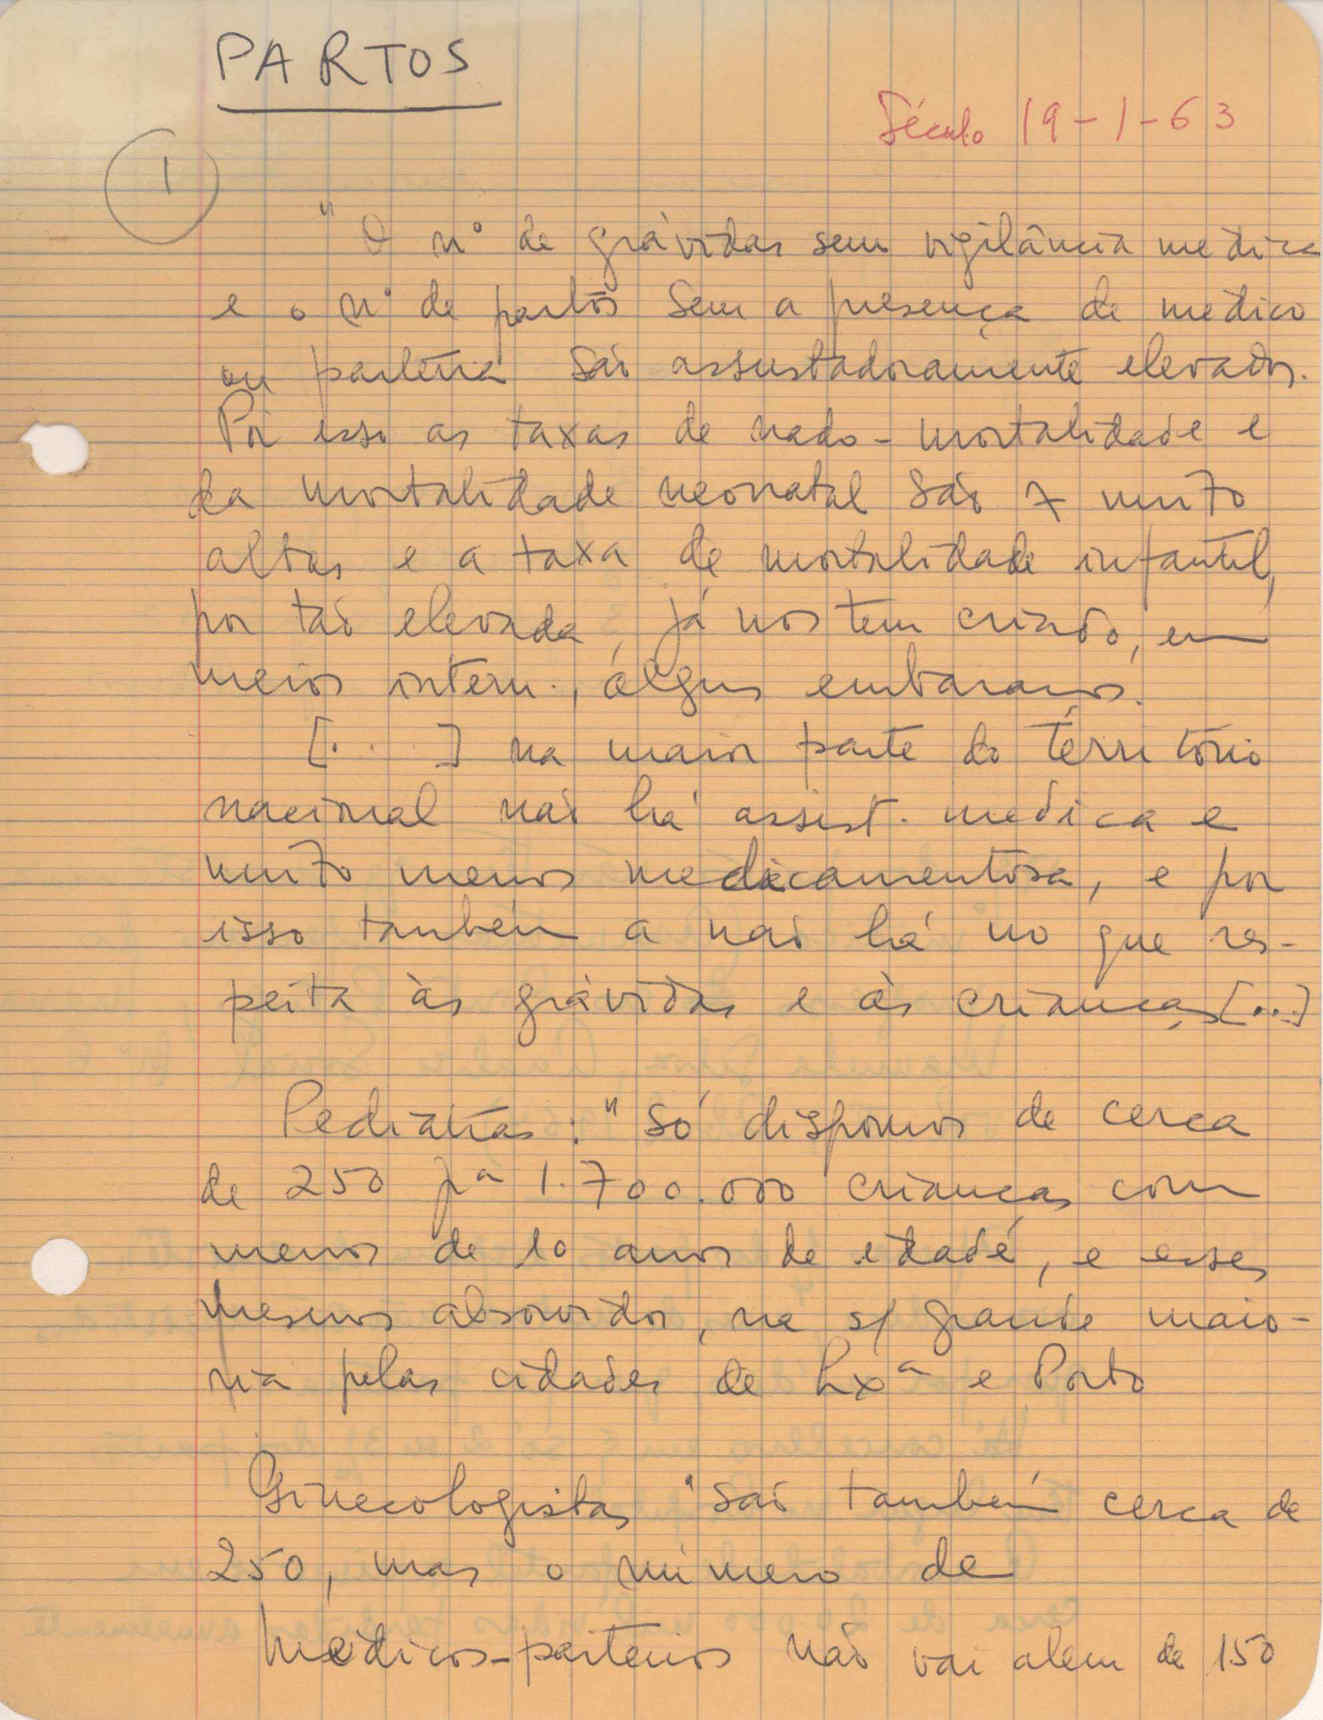 PARTOS
Século 19-1-63
1
"O nº de grávidas sem vigilância médica
e o nº de partos sem a presença de médico
ou parteira são assustadoramente elevados.
Por isso as taxas de nado-mortalidade e
da mortalidade neonatal são muito
altas e a taxa de mortalidade infantil,
por tão elevada, já nos tem criado, em
meios intern., alguns embaraços.
[...] na maior parte do território
nacional não há assist. médica e
muito menos medicamentosa, e por
isso também a não há no que res-
peita às grávidas e às crianças [...]
Pediatras: "só dispomos de cerca
de 250 pª 1.700.000 crianças com
menos de 10 anos de idade, e esses
mesmos absorvidos, na s/ grande maio-
ria pelas cidades de Lxª e Porto
Ginecologistas "são também cerca de
250, mas o número de
Médicos-parteiros não vai além de 150